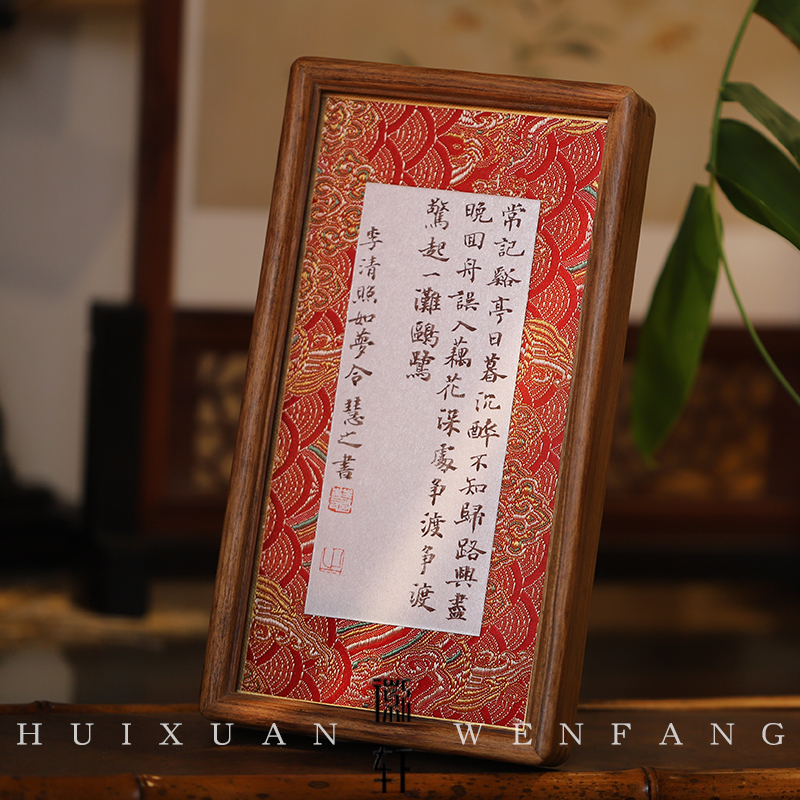 常記谿亭日暮沉醉不知歸路興盡
晚回舟誤入藕花深處争渡争渡
驚起一灘鷗鷺
李清照如夢令 慧之書
HUIXUAN WENFANG
轩